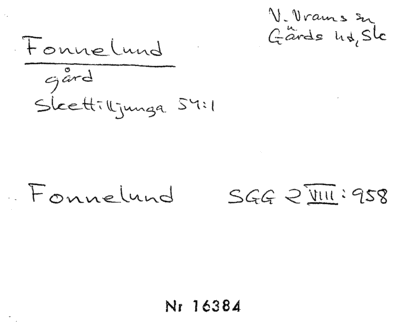 V. Vrams sn
Gärds hd, Sk
Fonnelund
gård
Skettilljunga 54:1
Fonnelund SGG 2 VIII: 958
Nr 16384